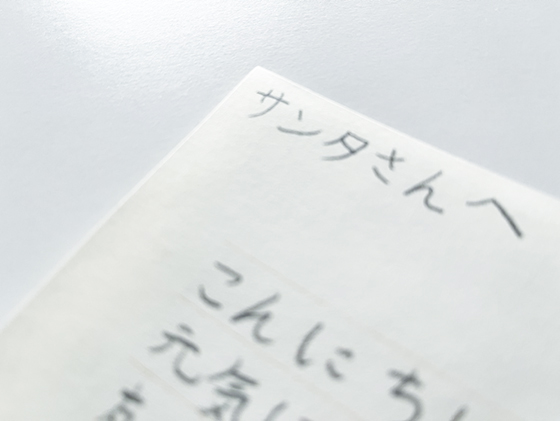 サンタさんへ
こんにち
元気に